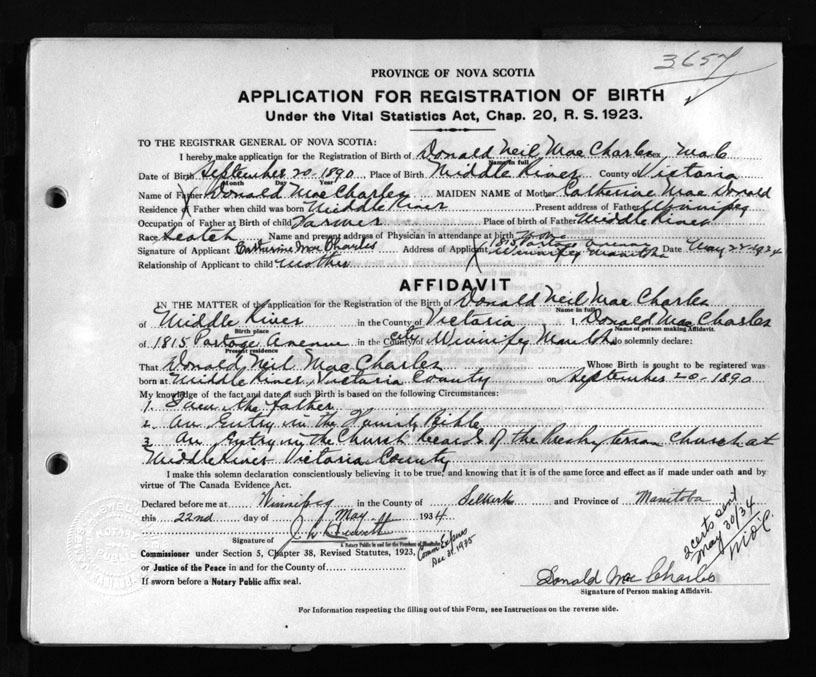 3657
PROVINCE OF NOVA SCOTIA
APPLICATION FOR REGISTRATION OF BIRTH
Under the Vital Statistics Act, Chap. 20, R. S. 1923.
TO THE REGISTRAR GENERAL OF NOVA SCOTIA:
I hereby make application for the Registration of Birth of Donald Neil Mac Charles Sex Male
Name in full
Date of Birth September 20-1890 Place of Birth Middle River County of Victoria
Month Day Year
Name of Father Donald MacCharles MAIDEN NAME of Mother Catherine Mac Donald
Residence of Father when child was born Middle River Present address of Father Winnipeg
Occupation of Father at Birth of child Farmer Place of birth of Father Middle River
Race Scotch Name and present address of Physician in attendance at birth None
Signature of Applicant Catherine Mac Charles Address of Applicant 1815 Portage Avenue Winnipeg Manitoba Date May 22-1934
Relationship of Applicant to child Mother
AFFIDAVIT
IN THE MATTER of the application for the Registration of the Birth of Donald Neil Mac Charles
Name in full
of Middle River in the County of Victoria I, Donald Mac Charles
Birth place Name of person making Affidavit.
of 1815 Portage Avenue in the City of Winnipeg Man do solemnly declare:
Present residence
That Donald Neil MacCharles Whose Birth is sought to be registered was
born at Middle River, Victoria County on September 20-1890
My knowledge of the fact and date of such Birth is based on the following Circumstances:
1. I am the father
2. An Entry in the Family Bible
3 An Entry in the Church records of the Presbyterian Church at
Middle River Victoria County
I make this solemn declaration conscientiously believing it to be true, and knowing that it is of the same force and effect as if made under oath and by
virtue of The Canada Evidence Act.
Declared before me at Winnipeg in the County of Selkirk and Province of Manitoba
this 22nd day of May 1934
Signature of
A Notary Public in and for the Province of Manitoba
Comm Expires
Dec 31. 1935
Commissioner under Section 5, Chapter 38, Revised Statutes, 1923,
or Justice of the Peace in and for the County of
If sworn before a Notary Public affix seal.
2 certs sent
May 30/34
Donald Mac Charles
Signature of Person making Affidavit.
For Information respecting the filling out of this Form, see Instructions on the reverse side.